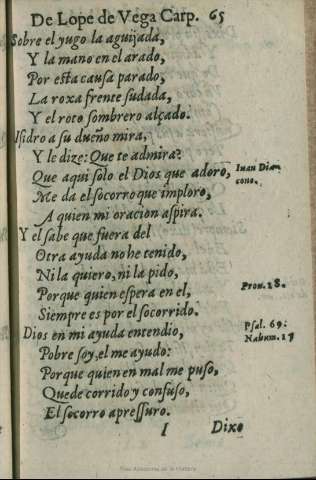 De Lope de Vega Carp. 65
Sobre el yugo la aguijada,
Y la mano en el arado,
Por esta causa parado,
La roxa frente sudada,
Y el roto sombrero alçado.
Isidro a su dueño mira,
Y le dize: Que te admira?
Que aqui solo el Dios que adoro,
Me da el socorro que imploro,
A quien mi oracion aspira.
Y el sabe que fuera del
Otra ayuda no he tenido,
Ni la quiero, ni la pido,
Porque quien espera en el,
Siempre es por el socorrido.
Dios en mi ayuda entendio,
Pobre soy, el me ayudo:
Porque quien en mal me puso,
Quede corrido y confuso,
El socorro apressuro.
I Dixo
Iuan Dia
cono.
Prou. 28.
Psal. 69:
Nahum. 1